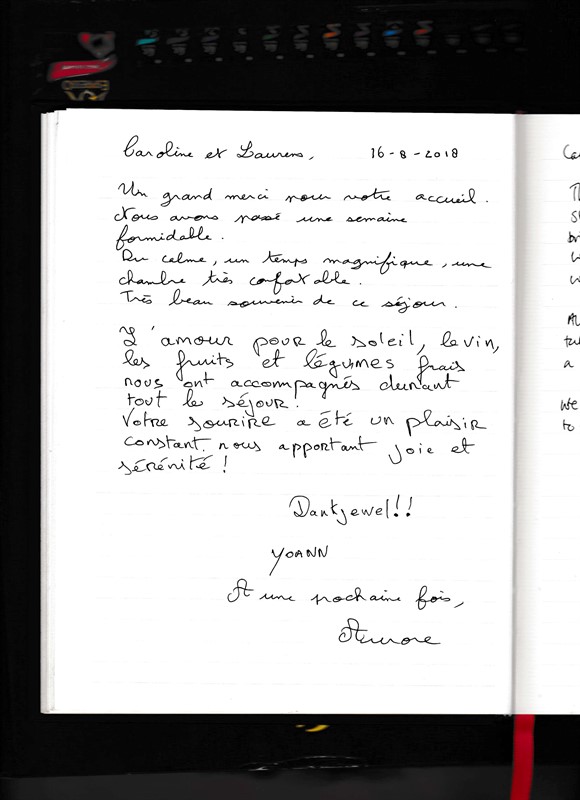 Caroline et Laurens, 16-8-2018
Un grand merci pour votre accueil.
Nous avons passé une semaine
formidable.
Du calme, un temps magnifique, une
chambre très confortable.
Très beau souvenir de ce séjour.
L'amour pour le soleil, le vin,
les fruits et légumes frais
nous ont accompagnés durant
tout le séjour.
Votre sourire a été un plaisir
constant, nous apportant joie et
sérénité !
Dankjewel!!
YOANN
A une prochaine fois,
Aurore
we
to